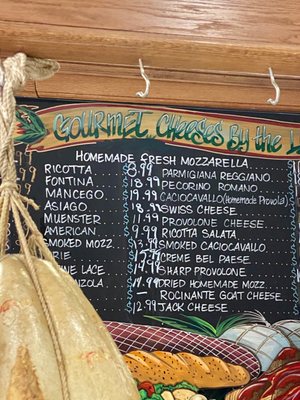 GOURMET CHEESES BY the L
HOMEMADE FRESH MOZZARELLA
RICOTTA $8.99
FONTINA $18.99
MANCEGO $19.99
ASIAGO $18.99
MUENSTER $11.99
AMERICAN $9.99
SMOKED MOZZ. $13.99
RIE
INE LACE
$12.99
PARMIGIANA REGGIANO
PECORINO ROMANO
CACIOCAVALLO (Homemade Provola)
SWISS CHEESE
PROVOLONE CHEESE
RICOTTA SALATA
SMOKED CACIOCAVALLO
CREME BEL PAESE
SHARP PROVOLONE
DRIED HOMEMADE MOZZ
ROCINANTE GOAT CHEESE
JACK CHEESE